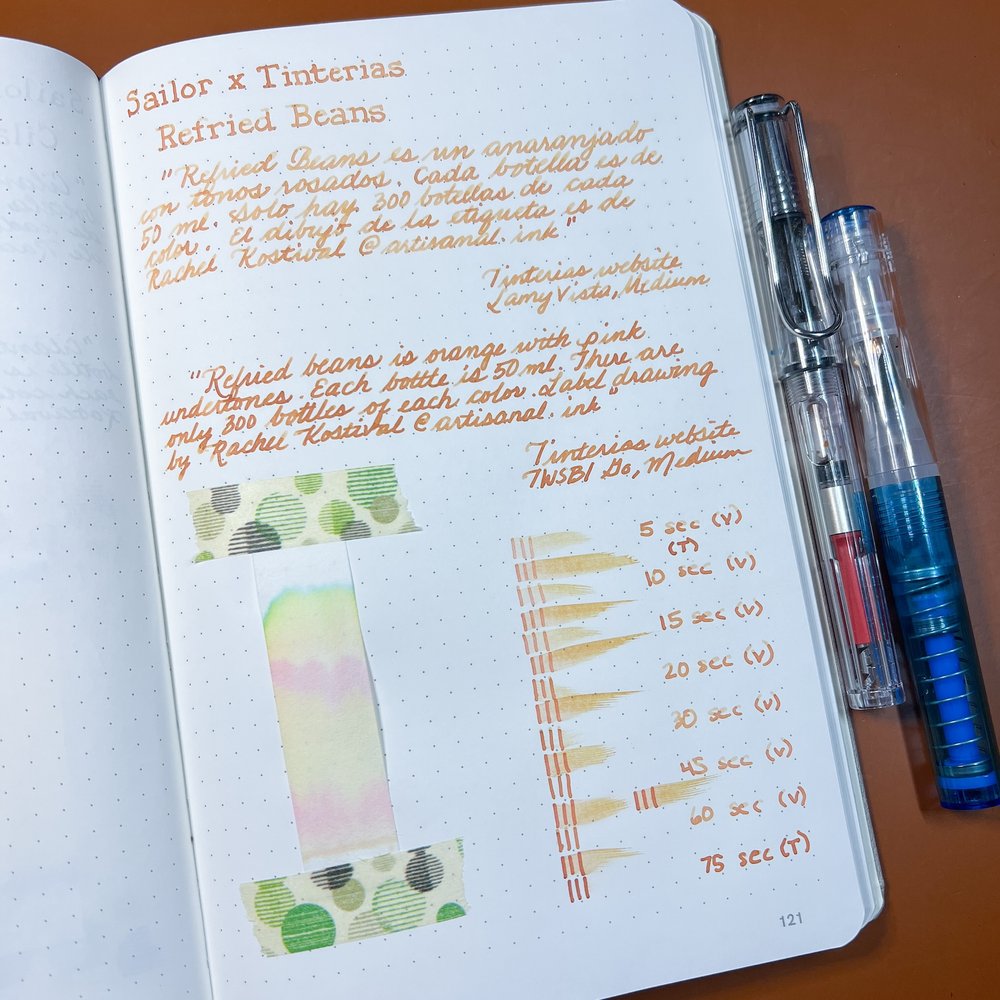 Sailor x Tinterias
Refried Beans
"Refried Beans es un anaranjado
con tonos rosados. Cada botella es de
50 ml. Solo hay 300 botellas de cada
color. El dibujo de la etiqueta es de
Rachel Kostival @artisanal.ink"
Tinterias website
Lamy Vista, Medium
"Refried beans is orange with pink
undertones. Each bottle is 50 ml. There are
only 300 bottles of each color. Label drawing
by Rachel Kostival @artisanal.ink"
Tinterias website
TWSBI Go, Medium
5 sec (V)
(T)
10 sec (V)
15 sec (V)
20 sec (V)
30 sec (V)
45 sec (V)
60 sec (V)
75 sec (T)
121